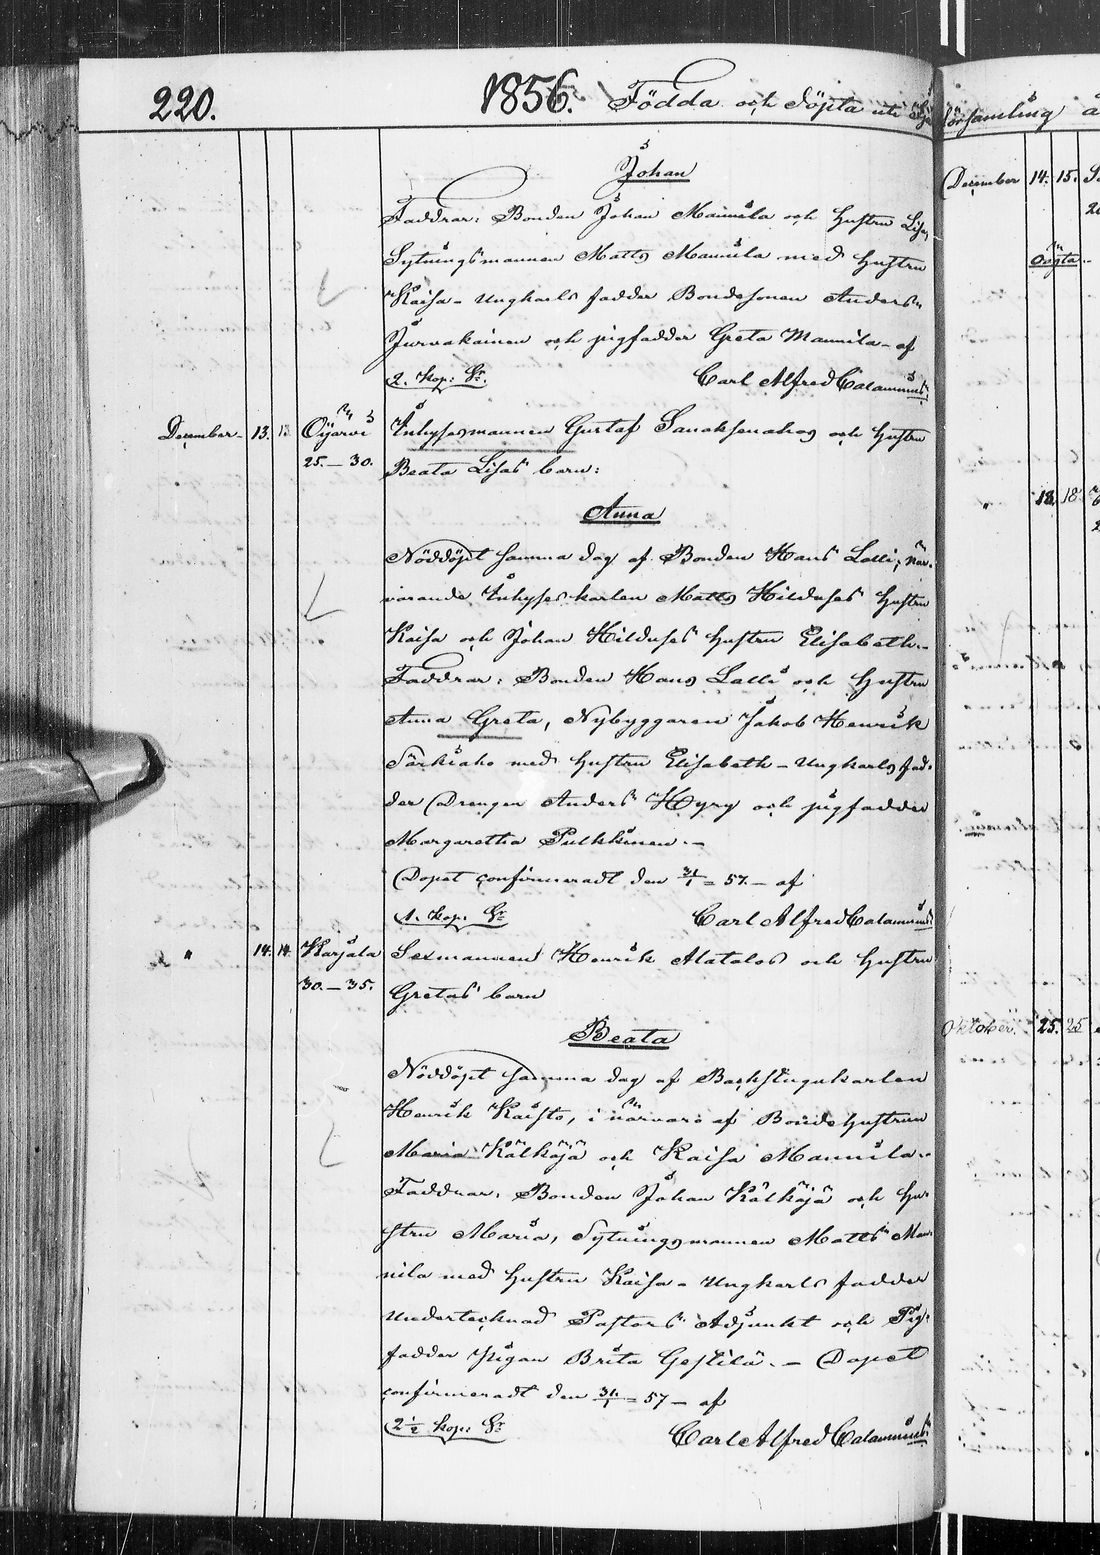 220.
1856. Födda och Döpta uti
Johan
Faddrar: Bonden Johan Mannila och Hustru Lisa,
Sytningsmannen Matts Mannila med Hustru
Kaisa – Ungkarls fadder Bondesonen Anders
Jurvakainen och pigfadder Greta Mannila – af
2. Kop: Sr. Carl Alfred Calamnius
December 13. 13 Oijärvi Inhysesmannen Gustaf Sanaksenahos och Hustru
25. – 30. Beata Lisas barn:
Anna
Nöddöpt samma dag af Bonden Hans Lalli, när-
varande Inhyseskarlen Matts Hilduses Hustru
Kaisa och Johan Hilduses Hustru Elisabeth.
Faddrar: Bonden Hans Lalli och Hustru
Anna Greta, Nybyggaren Jakob Henrik
Särkiaho med Hustru Elisabeth – Ungkarls fad-
der Drengen Anders Hyry och pigfadder
Margaretha Pulkkinen. –
Dopet confirmeradt den 31/1 = 57. – af
1. Kop: Sr Carl Alfred Calamnius
" 14. 14. Karjala Sexmannen Henrik Alatalos och Hustru
30. – 35. Gretas barn
Beata
Nöddöpt samma dag af Backstugukarlen
Henrik Kaisto, i närvaro af Bondehustrun
Maria Kälkäjä och Kaisa Mannila.
Faddrar: Bonden Johan Kälkäjä och Hu-
stru Maria, Sytningsmannen Matts Man-
nila med Hustru Kaisa – Ungkarls fadder
Undertecknad Pastors Adjunkt och Pig-
fadder pigan Brita Gestilä. – Dopet
confirmeradt den 31/1 = 57 – af
2 1/2 Kop: Sr Carl Alfred Calamnius
församling
December 14. 15.
18. 18.
Oktober 25. 25